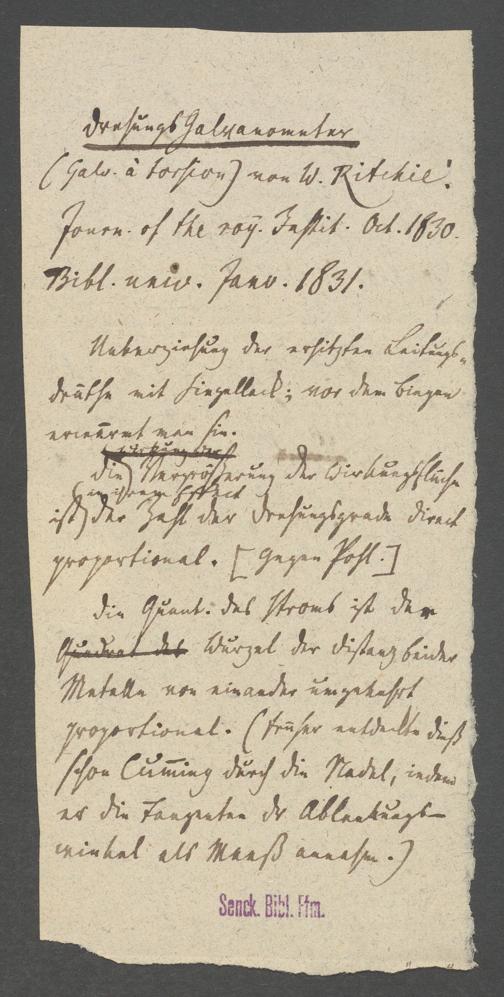 Drehungs Galvanometer
(Galv. à torsion) von W. Ritchie.
Journ. of the roy. Instit. Oct. 1830.
Bibl. univ. Janv. 1831.
Ueberziehung der erhitzten Leitungs-
dräthe mit Siegellack; vor dem biegen
erwärmt man sie.
die Vergrößerung der Wirkungsfläche
(in ihrem Effect
ist) der Zahl der Drehungsgrade direct
proportional. [Gegen Pohl.]
die Quant. des Stroms ist der
Quadrat des Wurzel der Distanz beider
Metalle von einander umgekehrt
proportional. (früher entdeckte dieß
schon Cuming durch die Nadel, indem
er die Tangenten der Ablenkungs-
winkel als Maaß annahm.)
Senck. Bibl. Ffm.